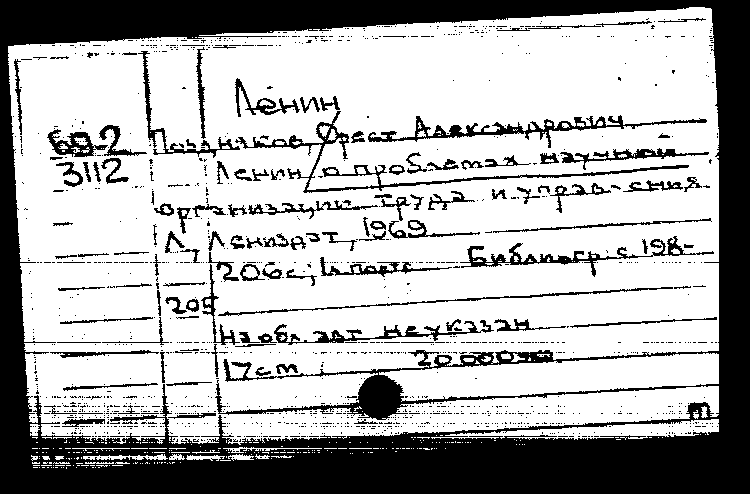 Ленин
69-2 Поздняков, Орест Александрович.
3112 Ленин о проблемах научной
организации труда и управления
Л, Лениздат, 1969
206 с.; 1 л. портр. Библиогр. с. 198-
205
На обл. авт. не указан
17 см. 20.000 экз.